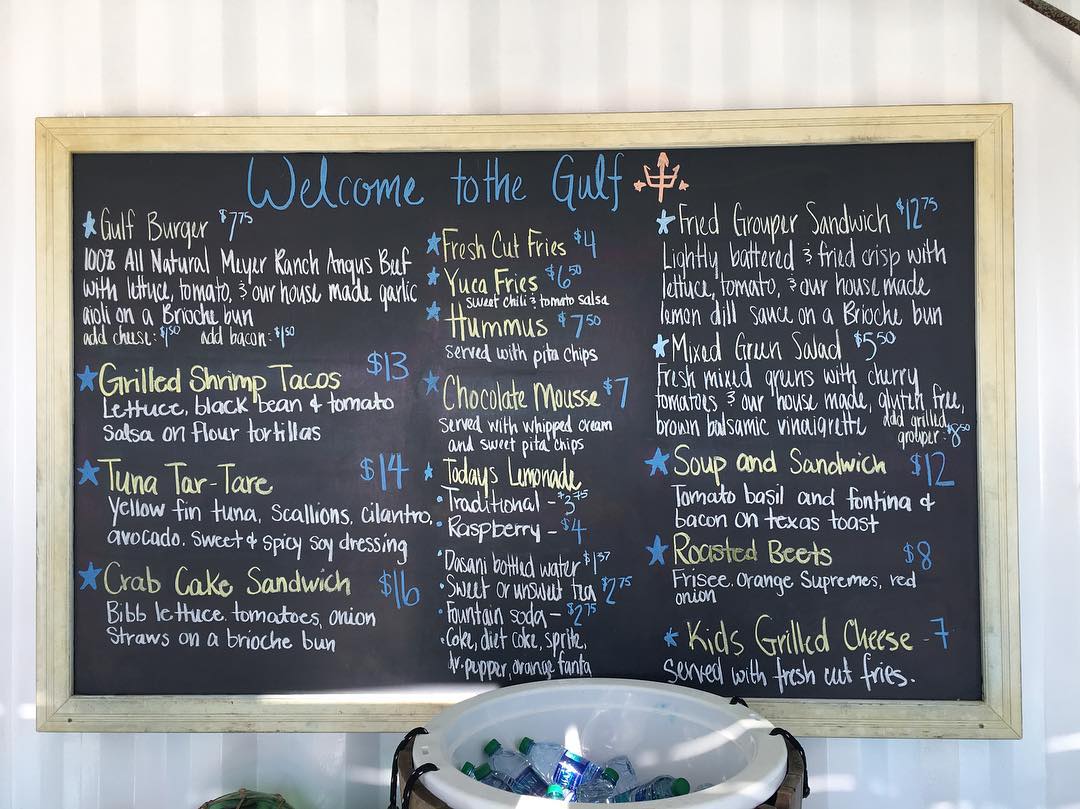 Welcome to the Gulf
Gulf Burger $7.75
100% All Natural Meyer Ranch Angus Beef
with lettuce, tomato, & our house made garlic
aioli on a Brioche bun
add cheese: $1.50 add bacon: $1.50
Grilled Shrimp Tacos $13
Lettuce, black bean & tomato
Salsa on flour tortillas
Tuna Tar-Tare $14
Yellow fin tuna, Scallions, cilantro,
avocado, sweet & spicy soy dressing
Crab Cake Sandwich $16
Bibb lettuce, tomatoes, onion
Straws on a brioche bun
Fresh Cut Fries $4
Yuca Fries $6.50
sweet chili & tomato salsa
Hummus $7.50
served with pita chips
Chocolate Mousse $7
served with whipped cream
and sweet pita chips
Todays Lemonade
Traditional - $3.75
Raspberry - $4
Dasani bottled water $1.37
Sweet or unsweet tea $2.75
Fountain soda - $2.75
Coke, diet coke, sprite,
dr. pepper, orange fanta
Fried Grouper Sandwich $12.75
Lightly battered & fried crisp with
lettuce, tomato, & our house made
lemon dill sauce on a Brioche bun
Mixed Green Salad $5.50
Fresh mixed greens with cherry
tomatoes & our house made, gluten free,
brown balsamic vinaigrette add grilled
grouper: $8.50
Soup and Sandwich $12
Tomato basil and fontina &
bacon on texas toast
Roasted Beets $8
Frisee, Orange Supremes, red
onion
Kids Grilled Cheese - 7
Served with fresh cut fries.